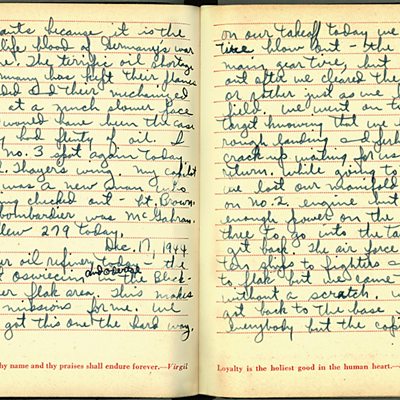 because it is the
life blood of Germanys war
The teriffic oil shortage
has kept their
and their mechanized
at a much slower pace
would have been the case
had plenty of oil. I
no. 3 spot again today
wing. My copilot
was a new man who
checked out - Lt. Brown.
bombardier was McGahran.
flew 279 today.
Dec. 17, 1944
oil refinery today - the
Oswiecim and odertal in the Blech-
flak area. This makes
missions for me. We
got this one the hard way.
thy name and thy praises shall endure forever.—Virgil
on our takeoff today we
tire blow out - the
main gear tire, but
out after we cleared the
or rather just as we
field. We went on to
target knowing that we
rough landing and
crack-up waiting for us
return. While going to
we lost our manifold
on no. 2 engine but
enough power on the
three to go into the
get back. The air force
ten ships to fighters
to flak but we came
without a scratch. We
got back to the base
Everybody but the
Loyalty is the holiest good in the human heart.—